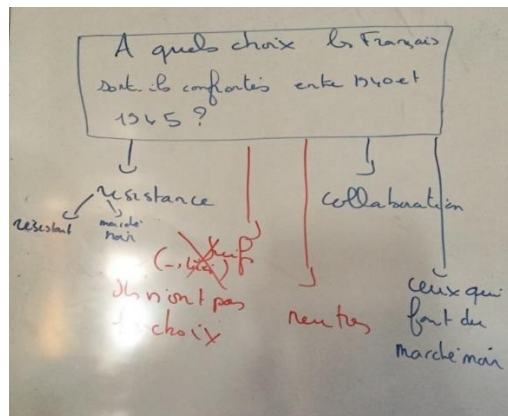 A quels choix les Français
sont-ils confrontés entre 1940 et
1945 ?
résistance
collaboration
résistant
marché
noir
juifs
Ils n'ont pas
le choix
neutres
ceux qui
font du
marché noir